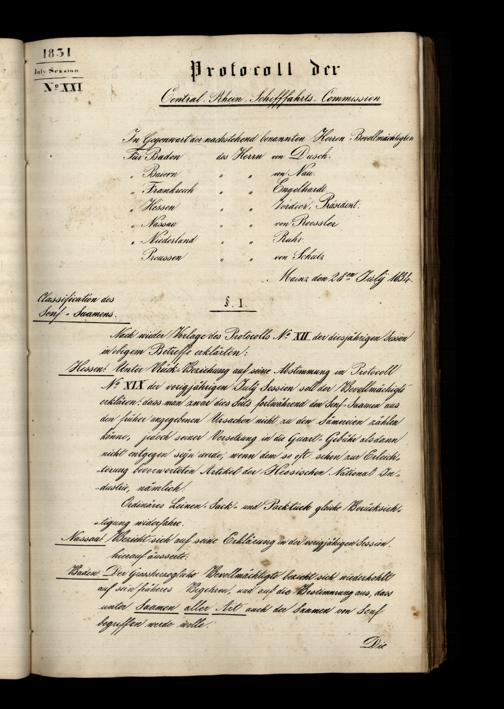 1831
July Session
No XXI
Protocoll der
Central-Rhein-Schifffahrts-Commission
In Gegenwart der nachstehend benannten Herren Bevollmächtigten
Für Baden des Herrn von Dusch.
" Baiern " " von Nau
" Frankreich " " Engelhardt
" Hessen " " Verdier, Präsident.
" Nassau " " von Roessler
" Niederland " " Ruhr.
Preussen " " von Schütz
Mainz den 28ten July 1834.
Classification des
Senf-Saamens.
§. 1.
Nach wieder Vorlage des Protocolls No XII der diesjährigen Session
in obigem Betreffe erklärten:
Hessen: Unter Rück-Beziehung auf seine Abstimmung in Protocoll
No XIX der vorigjährigen July Session soll der Bevollmächtigte
erklären: dass man zwar dies Seits fortwährend den Senf-Saamen aus
den früher angegebenen Ursachen nicht zu den Sämereien zählen
könne, jedoch seiner Versetzung in die Quart-Gebühr alsdann
nicht entgegen seyn werde, wenn dem so oft schon zur Erleich-
terung bevorworteten Artikel der Hessischen National In-
dustrie, nämlich
Ordinäres Leinen-Sack- und Packtuch gleiche Berücksich-
tigung widerfahre.
Nassau: Bezieht sich auf seine Erklärung in der vorigjährigen Session
hierauf äusserte.
Baden: Der Grossherzogliche Bevollmächtigte bezieht sich wiederhohlt
auf sein früheres Begehren, und auf die Bestimmung aus, dass
unter Saamen aller Art auch der Saamen von Senf
begriffen werde wolle.
Die